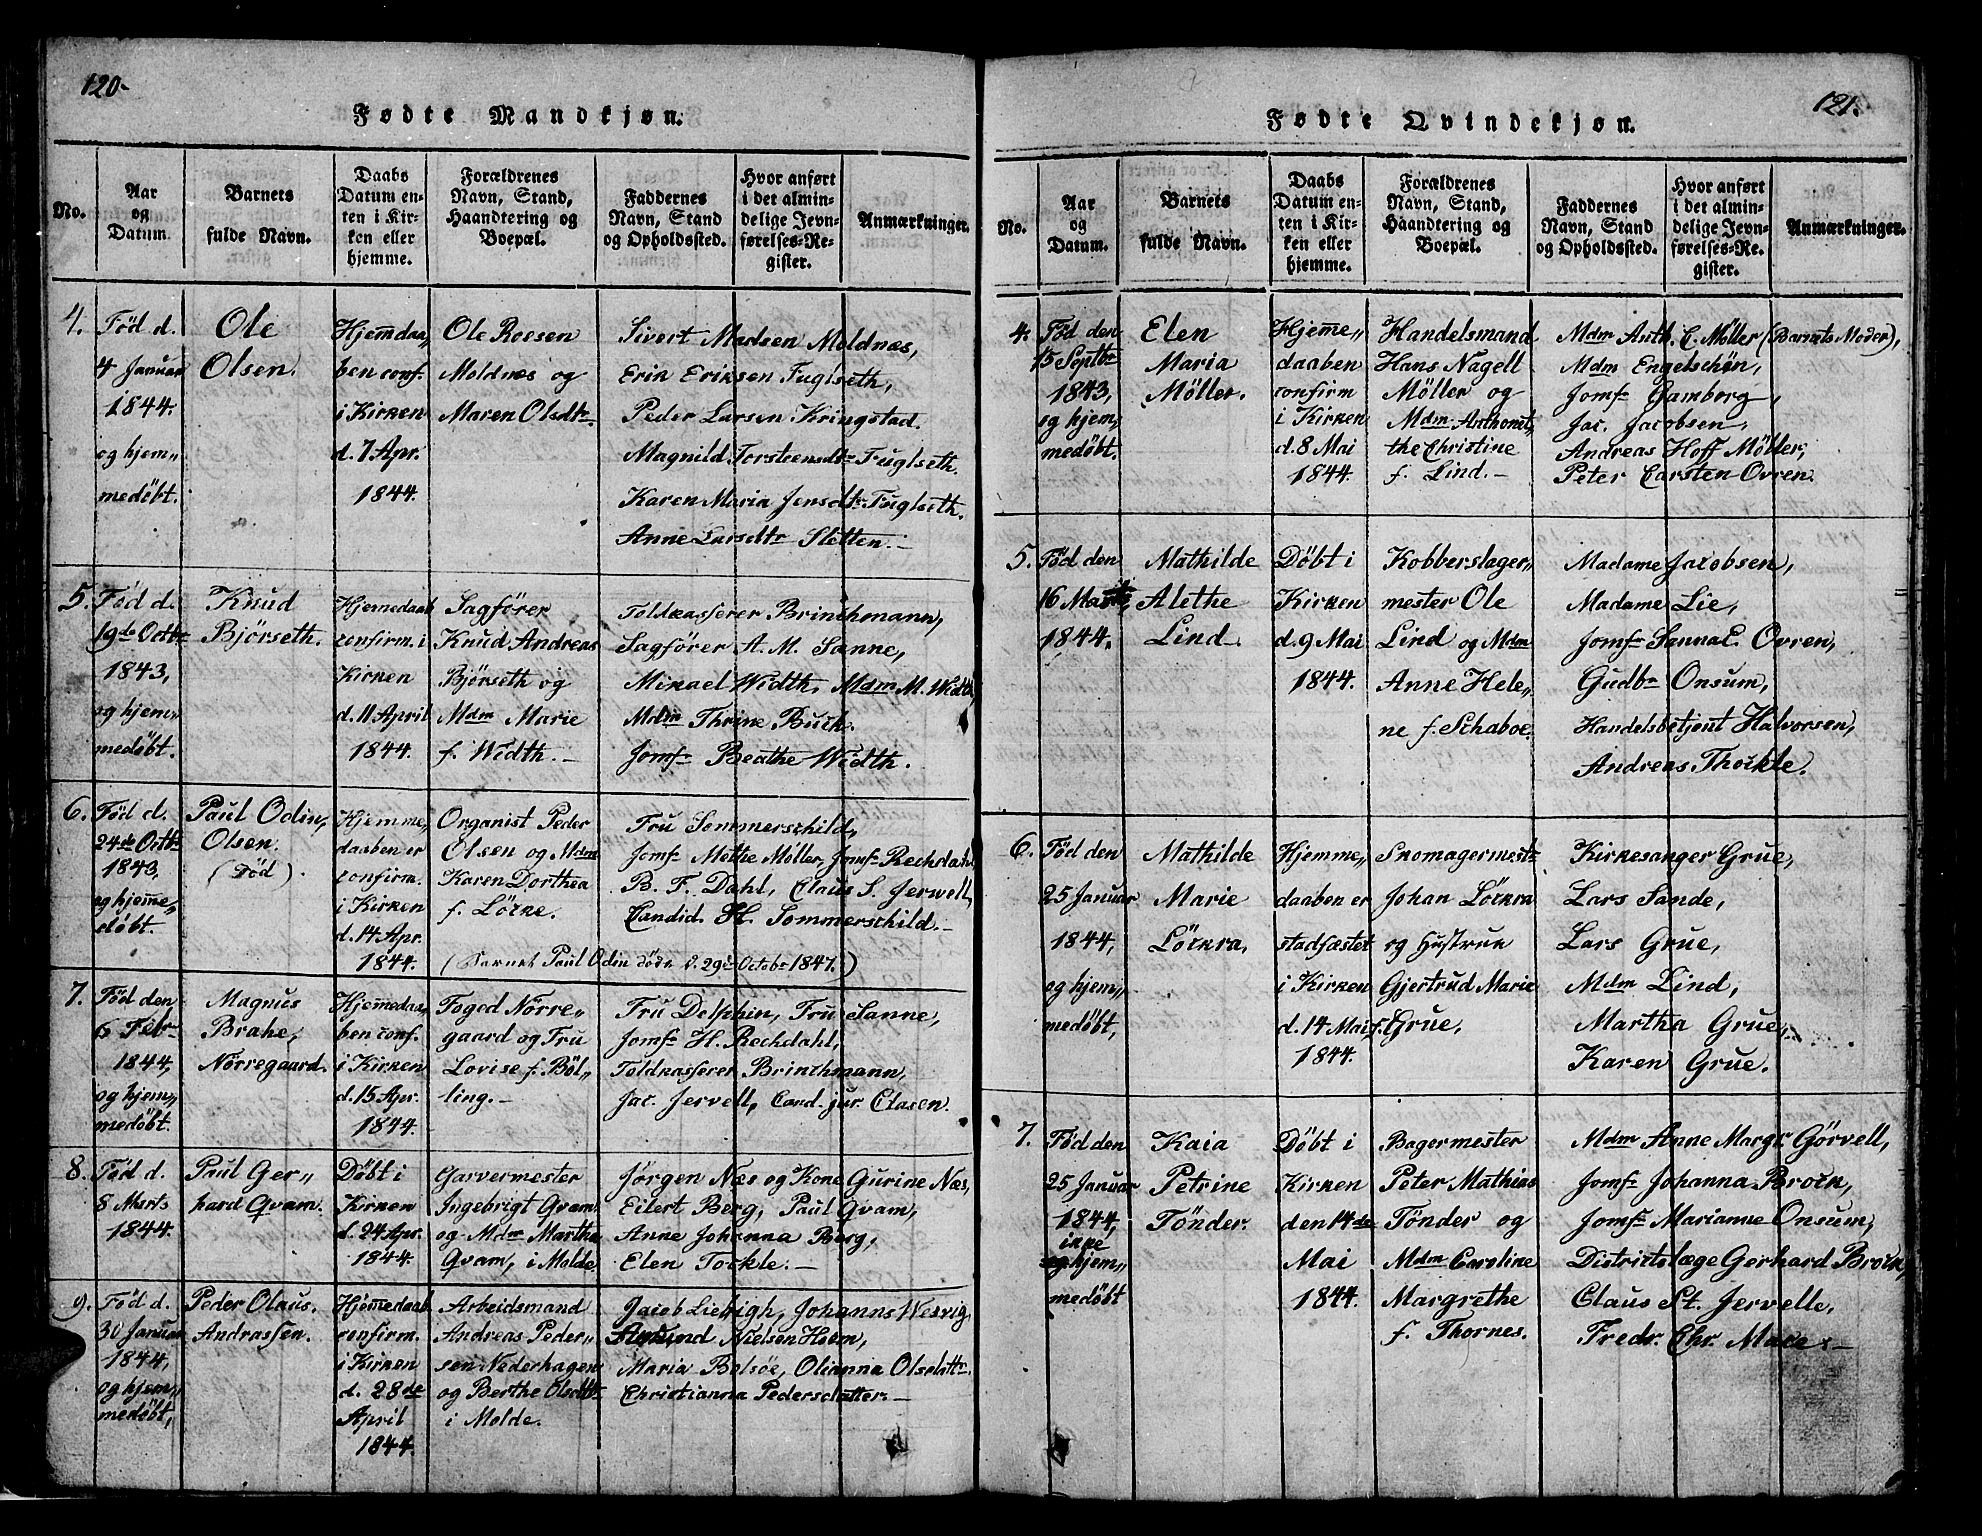 120-
Fødte Mandkjøn.
No.
Aar
og
Datum.
Barnets
fulde Navn.
Daabs
Datum en-
ten i Kir-
ken eller
hjemme.
Forældrenes
Navn, Stand,
Haandtering og
Boepæl.
Faddernes
Navn, Stand
og Opholdssted.
Hvor anført
i det almin-
delige Jevn-
førelses-Re-
gister.
Anmærkninger.
4.
Föd d.
4 Januar
1844.
og hjem„
medöbt.
Ole
Olsen.
Hjemdaa„
ben conf.
i Kirken
d. 7 Apr.
1844.
Ole Roesen
Moldnæs og
Maren Olsdtr.
Sivert Madsen Moldnæs,
Erik Eriksen Fuglseth,
Peder Larsen Kringstad.
Magnild Torsteensdtr Fuglseth.
Karen Maria Jensdtr Fuglseth.
Anne Larsdtr Sletten.-
5.
Föd d.
19de Octbr
1843,
og hjem„
medöbt.
Knud
Björseth.
Hjemedaab
confirm. i
Kirken
d. 11 April
1844.
Sagförer
Knud Andreas
Björseth og
Mdm Marie
f. Width.-
Toldkasserer Brinchmann,
Sagförer A. M. Sanne,
Mikael Width, Mdm M. Width
Mdm Thrine Buck.
Jomfr Beathe Width.
6.
Föd d.
24de Octbr
1843,
og hjeme„
döbt.
Paul Odin,
Olsen.
(Död).
Hjemme„
daaben er
confirm.
i Kirken
d. 14 Apr.
1844.
Organist Peder
Olsen og Mdm
Karen Dorthea
f. Löcke.
Fru Sommerschild,
Jomfr Methe Möller, Jomfr Rechdahl
B. F. Dahl, Claus S. Jerwell,
Candid. H. Sommerschild.-
(Barnet Paul Odin döde d. 29de Octobr 1847.)
7.
Föd den
6 Febr
1844,
og hjem„
medöbt.
Magnus
Brahe,
Nörregaard.
Hjemedaa„
ben conf.
i Kirken
d. 15 Apr.
1844.
Foged Nörre„
gaard og Fru
Lovise f. Böl„
ling.-
Fru Delphin, Fru Sanne,
Jomfr H. Rechdahl,
Toldkasserer Brinchmann,
Jac. Jervell, Cand. jur. Clasen.
8.
Föd d.
8 Marts
1844.
Paul Ger„
hard Qvam.
Döbt i
Kirken
d. 24 Apr.
1844.
Garvermester
Ingebrigt Qvam
og Mdm Martha
Qvam, i Molde.
Jörgen Næs og Kone Gurine Næs,
Eilert Berg, Paul Qvam,
Anne Johanna Berg,
Elen Tockle.-
9.
Föd d.
30 Januar
1844,
og hjem„
medöbt,
Peder Olaus.
Andrassen.
Hjemedaab
confirm.
i Kirken
d. 28de
April
1844.
Arbeidsmand
Andreas Peder„
sen Nederhagen
og Berthe Olsdtr
i Molde.
Jacob Liebigh, Johanns Wesvig,
Nielsen Heem,
Maria Bolsöe, Olianna Olsdattr.
Christianna Pedersdatter.-
121.
Fødte Qvindekjøn.
No.
Aar
og
Datum.
Barnets
fulde Navn.
Daabs
Datum en-
ten i Kir-
ken eller
hjemme.
Forældrenes
Navn, Stand,
Haandtering og
Boepæl.
Faddernes
Navn, Stand
og Opholdssted.
Hvor anført
i det almin-
delige Jevn-
førelses-Re-
gister.
Anmærkninger.
4.
Föd den
15 Septbr
1843,
og hjem„
medöbt.
Elen
Maria
Möller.
Hjeme„
daaben
confirm
i Kirken
d. 8 Mai
1844.
Handelsmand
Hans Nagell
Möller og
Mdm Anthonet„
the Christine
f. Lind.-
Mdm Anth. C. Möller (Barnets Moder),
Mdm Engelschön,
Jomfr Gamborg,
Jac. Jacobsen,
Andreas Hoff Möller,
Peter Carsten Ovren.
5.
Föd den
16 Marts,
1844.
Mathilde
Alethe
Lind.
Döbt i
Kirken
d. 9 Mai
1844.
Kobberslager„
mester Ole
Lind og Mdm
Anne Hele„
ne f. Schaboe.
Madame Jacobsen,
Madame Lie,
Jomfr Sanna E. Ovren,
Gudbr Onsum,
Handelsbetjent Halvorsen,
Andreas Thockle.
6.
Föd den
25 Januar
1844,
og hjem„
medöbt,
Mathilde
Marie
Löckra,
Hjemme„
daaben er
stadfæstet
i Kirken
d. 14 Mai
1844.
Skomagermestr
Johan Löckra
og Hustrue
Gjertrud Marie
f. Grue,
Kirkesanger Grue,
Lars Sande,
Lars Grue,
Mdm Lind,
Martha Grue,
Karen Grue.
7.
Föd den
25 Januar
1844,
ikke
hjem„
medöbt
Kaia
Petrine
Tönder.
Döbt i
Kirken
den 14de
Mai
1844.
Bagermester
Peter Mathias
Tönder og
Mdm Caroline
Margrethe
f. Thornes.
Mdm Anne Margr Görvell,
Jomfr Johanna Brock,
Jomfr Marianne Onsum,
Districtslæge Gerhard Brock,
Claus St. Jervelle,
Fredr. Chr. Mace.-